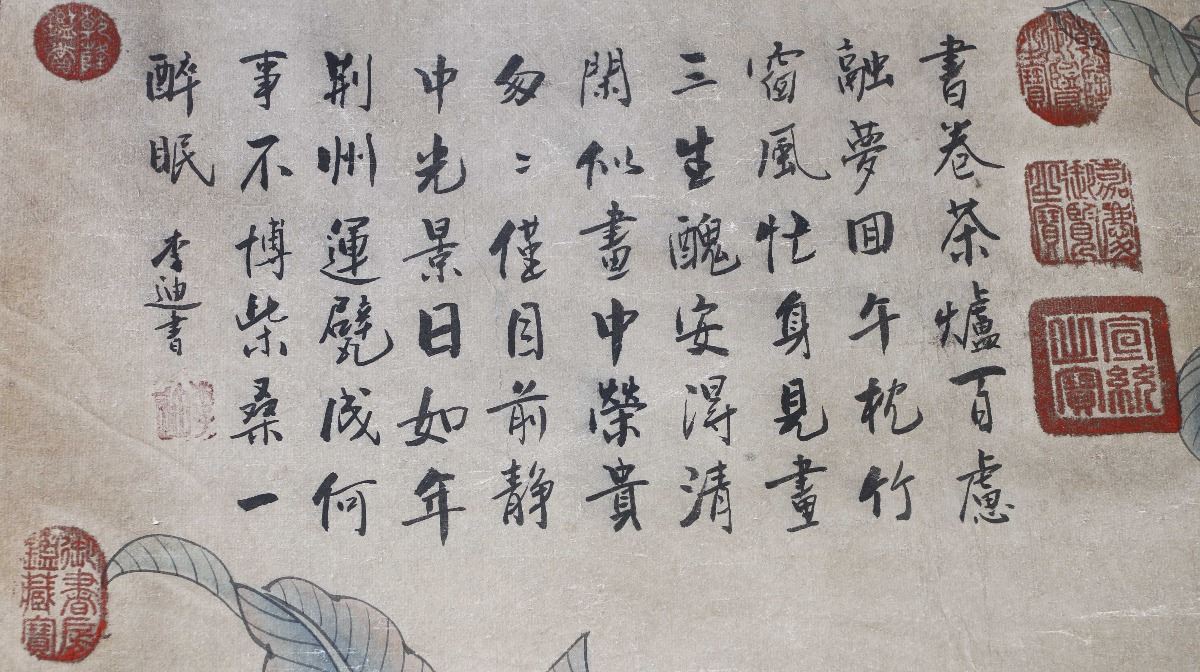 乾隆御覽之寶
嘉慶御覽之寶
宣統之寶
書卷茶爐百慮
融夢囬午枕竹
窗風忙身見畫
三生醜安得清
閑似畫中榮貴
匆〻僅目前靜
中光景日如年
荆州運甓成何
事不博柴桑一
醉眠
李迪書
乾隆鑑賞
御書房鑑藏寶